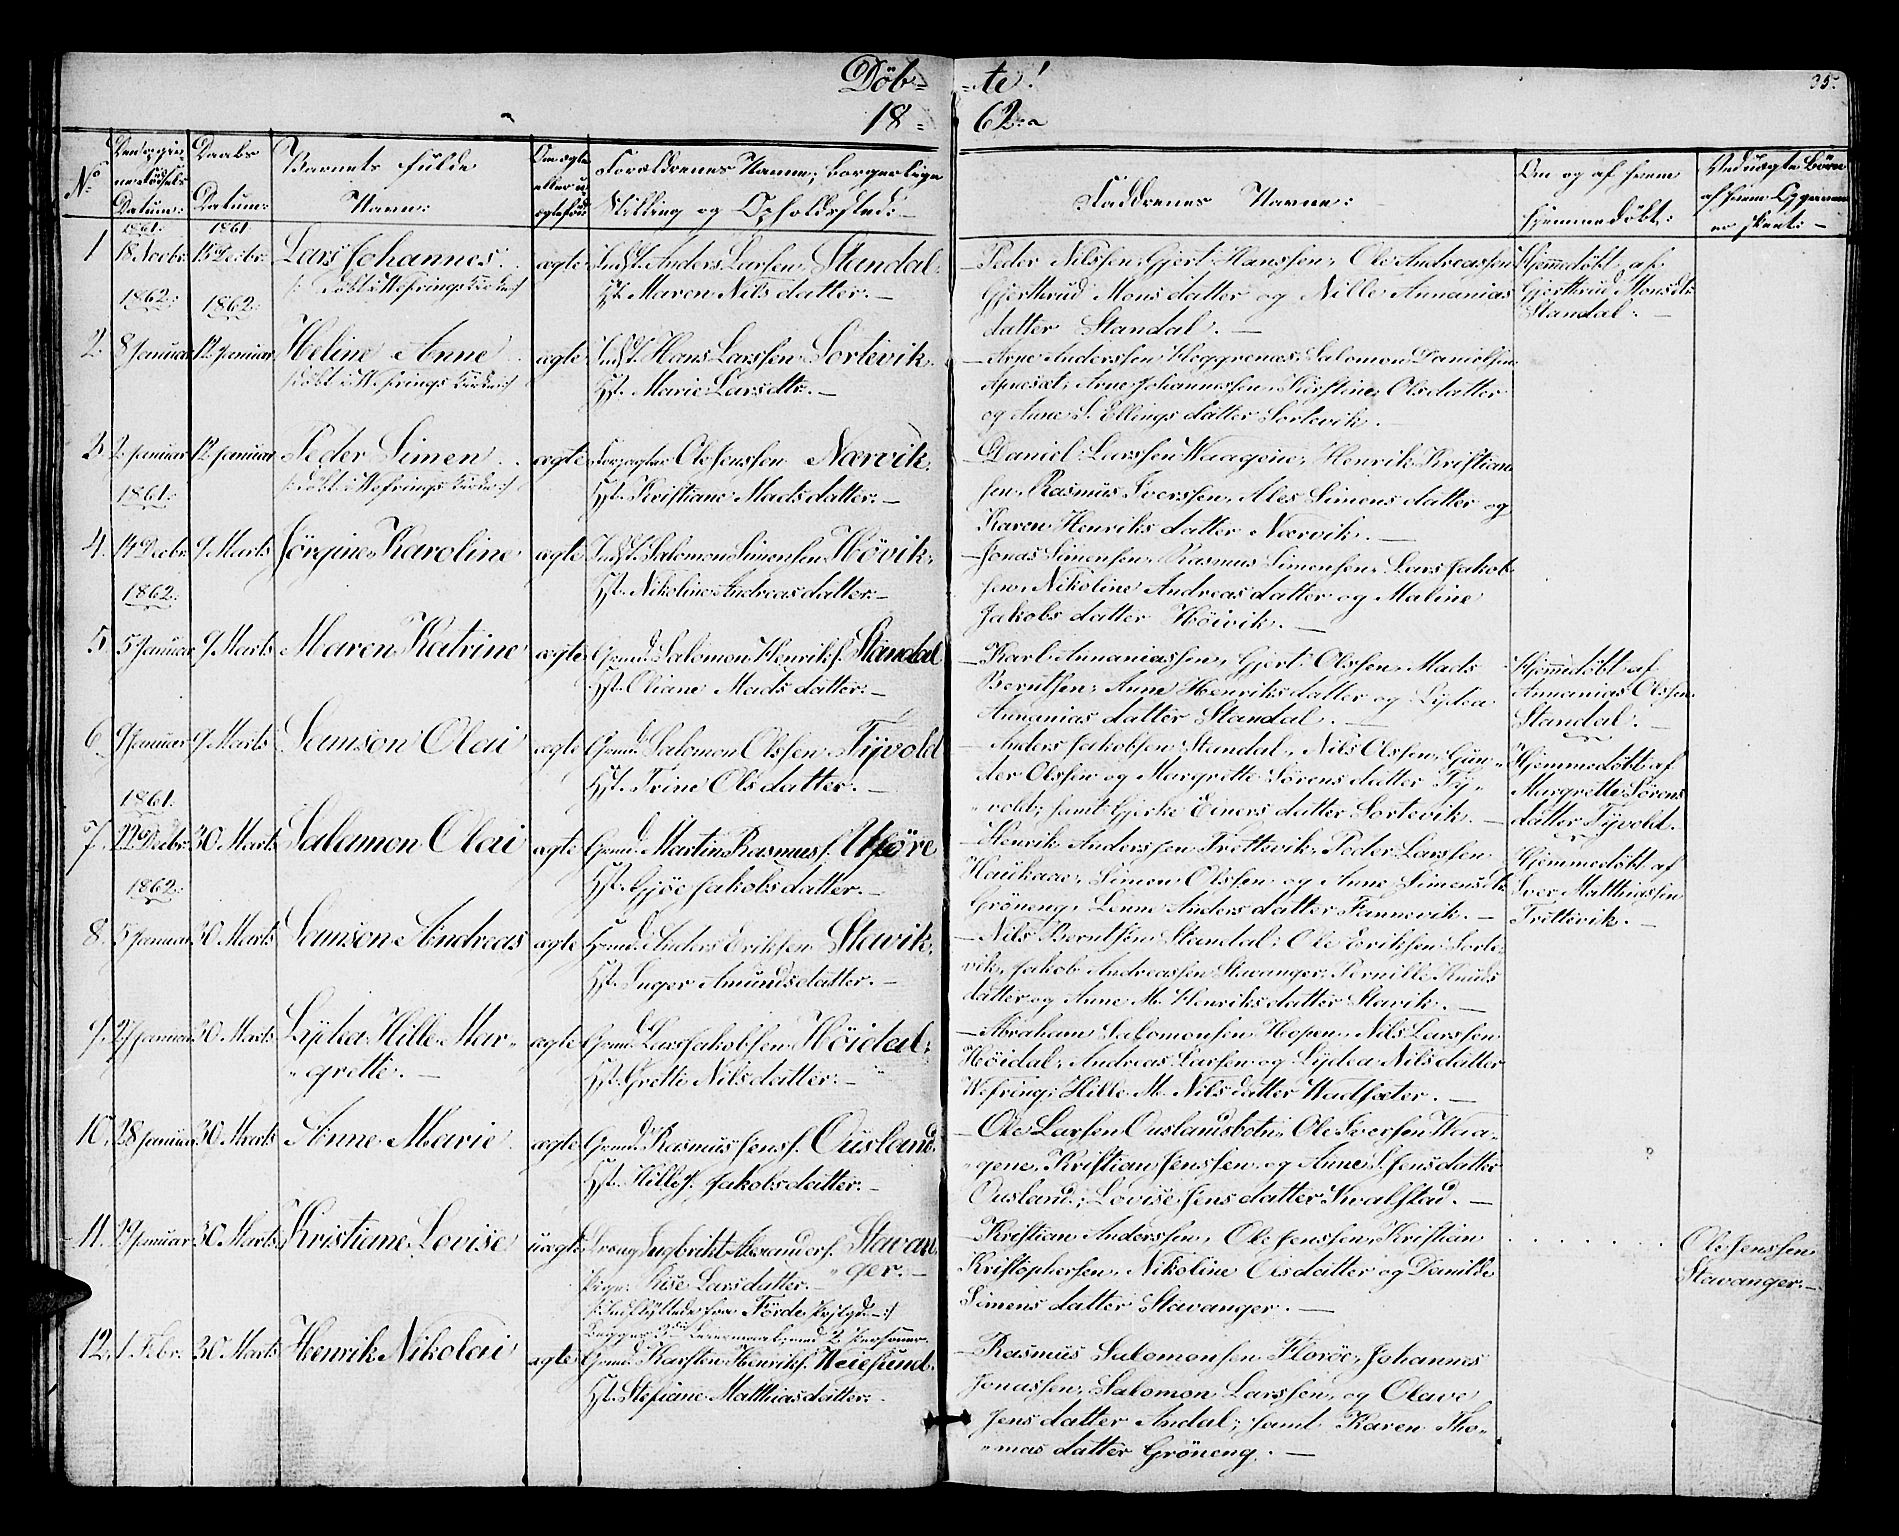 Döb- -te!
35.
18- 62.
No
Datum:
Daabs
Datum:
Barnets fulde
Navn:
Om ægte
eller u-
Forældrenes Navne, borgerlige
Stilling og Opholdssted:
Faddrenes Navne:
Om og af hvem
hjemmedöbt:
Ved uægte Börn
1861. 1861.
1 18 Novbr. 15 Decbr. Lars Johannes. ægte Anders Larsen Standal.
Hst. Maren Nilsdatter.
1862: 1862:
Peder Nilssen, Gjert Hanssen, Ole Andreassen
Gjerthrud Monsdatter og Nille Annanias
datter Standal.
Hjemmedöbt af
Gjerthrud Monsdt.
Standal.
2. 8 Januar 12 Januar Heline Anne ægte Hans Larssen Sortevik.
Hst. Marie Larsdtr.
Arne Anderssen Hoggrenæs, Salomon Danielssen
Arne Johannessen, Kirstine Olsdatter
og Anne S. Ellingsdatter Sortevik.
3. 2 Januar 12 Januar Peder Simen ægte Ole Jenssen Nærvik.
1861: Hst. Kristiane Madsdatter.
Daniel Larssen Waagene, Henrik Kristian
sen, Rasmus Iverssen, Ales Simensdatter og
Karen Henriksdatter Nærvik.
4. 14 Decbr. 9 Marts Jörgine Karoline ægte Salomon Simonsen Hövik.
1862: Hst. Nikoline Andreasdatter.
Jonas Simensen, Rasmus Simensen, Lars Jakob
sen, Nikoline Andreasdatter og Maline
Jakobsdatter Höivik.
5. 5 Januar 9 Marts Maren Katrine ægte Grmd. Salomon Henriks. Standal
Hst. Oliane Madsdatter.
Karl Annaniassen, Gjert Olssen, Mads
Berntsen, Anne Henriksdatter og Lydea
Annaniasdatter Standal.
Hjemmedöbt af
Annanias Olssen
Standal.
6. 9 Januar 9 Marts Samson Olai ægte Grmd. Salomon Olssen Tyvold
Hst. Trine Olsdatter.
1861.
Anders Jakobsen Standal, Nils Olssen, Gun-
der Olssen og Margrette Sörensdatter Ty-
vold, samt Gjerke Einersdatter Sortevik.
Hjemmedöbt af
Margrette Sörens
datter Tyvold.
7. 22 Decbr. 30 Marts Salamon Olai ægte Grmd. Martin Rasmus.
1862: Hst. Gjöe Jakobsdatter.
Henrik Anderssen Trettevik, Peder Larssen
Simon Olssen og Anne Simensdt.
Gröneng, Lenne Andersdatter Fannevik.
Hjemmedöbt af
Iver Matthiassen
Trettevik.
8. 5 Januar 30 Marts Samson Andreas ægte Grmd. Anders Eriksen Stavik.
Hst. Inger Amundsdatter.
Nils Berntsen Standal, Ole Eriksen Sorte-
vik, Jakob Andreassen Stavanger, Pernille Knuds
datter og Anne M. Henriksdatter Stavik.
9. 27 Januar 30 Marts Lydea Hille Mar-
grette. ægte Grmd. Lars Jakobsen Höidal.
Hst. Grette Nilsdatter.
Abraham Salomonsen Hopen, Nils Larssen
Höidal, Andreas Larsen og Lydea Nilsdatter
Wefring; Hille M. Nilsdatter Wadsæter.
10. 28 Januar 30 Marts Anne Marie ægte Grmd. Rasmus Jens. Ousland.
Hst. Hille J. Jakobsdatter.
Ole Larsen Ouslandsbotn, Ole Iversen Waa-
gene, Kristian Jenssen og Anne S. Jensdatter
Ousland; Lovise Jensdatter Kvalstad.
11. 29 Januar 30 Marts Kristiane Lovise uægte Ingbrikt Alexanders. Stavan
ger.
Larsdatter.
Förde
Kristian Anderssen, Ole Jenssen, Kristian
Kristophersen, Nikoline Olsdatter og
Simensdatter Stavanger.
Ole Jenssen
Stavanger.
12. 1. Febr. 30 Marts Henrik Nikolai ægte Grmd. Karsten Henriks. Weiesund.
Hst. Stefiane Matthiasdatter.
Rasmus Salomonsen Floröe, Johannes
Jonassen, Salomon Larssen, og Olave
Jensdatter Andal, samt Karen Tho-
masdatter Gröneng.